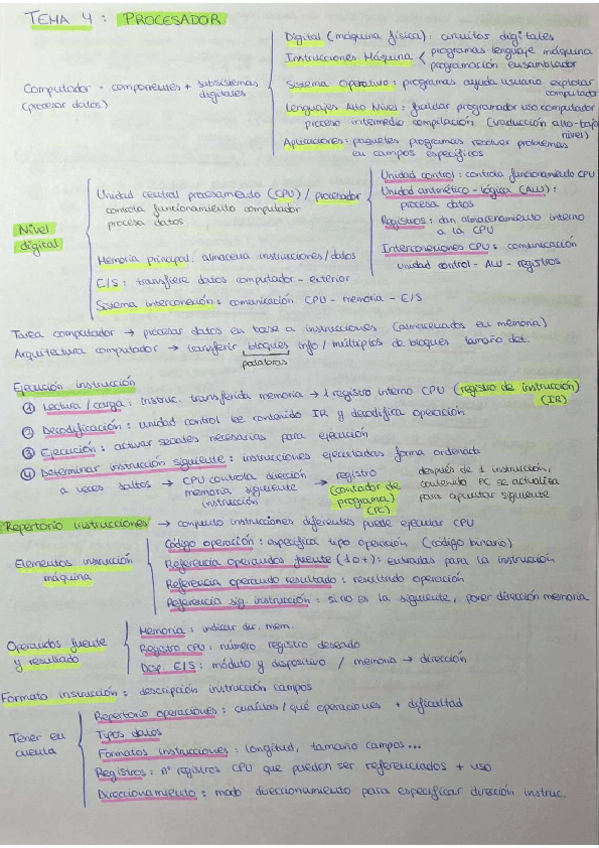 TEMA 4: PROCESADOR
Computador = componentes + subsistemas digitales
(procesar datos)
Digital (máquina física): circuitos digitales
Instrucciones Máquina < programas lenguaje máquina
programación ensamblador
Sistema Operativo: programas ayuda usuario explotar computador
Lenguajes Alto Nivel: facilitar programador uso computador
proceso intermedio compilación (traducción alto-bajo nivel)
Aplicaciones: paquetes programas resolver problemas
en campos específicos
Nivel digital
Unidad central procesamiento (CPU) / procesador
controla funcionamiento computador
procesa datos
Unidad control: controla funcionamiento CPU
Unidad aritmético-lógica (ALU):
procesa datos
Registros: dan almacenamiento interno
a la CPU
Interconexiones CPU: comunicación
unidad control - ALU - registros
Memoria principal: almacena instrucciones/datos
E/S: transfiere datos computador - exterior
Sistema interconexión: comunicación CPU - memoria - E/S
Tarea computador → procesar datos en base a instrucciones (almacenados en memoria)
Arquitectura computador → transferir bloques info / múltiplos de bloques tamaño det.
palabras
Ejecución instrucción
① Lectura / carga: instruc. transferida memoria → 1 registro interno CPU (registro de instrucción)
(IR)
② Decodificación: unidad control lee contenido IR y decodifica operación
③ Ejecución: activar señales necesarias para ejecución
④ Determinar instrucción siguiente: instrucciones ejecutadas forma ordenada
a veces saltos → CPU controla dirección memoria siguiente instrucción → registro (contador de programa) (PC)
después de 1 instrucción, contenido PC se actualiza para apuntar siguiente
Repertorio instrucciones → conjunto instrucciones diferentes puede ejecutar CPU
Elementos instrucción máquina
Código operación: especifica tipo operación (código binario)
Referencia operandos fuente (1 o +): entradas para la instrucción
Referencia operando resultado: resultado operación
Referencia sig. instrucción: si no es la siguiente, poner dirección memoria
Operandos fuente y resultado
Memoria: indicar dir. mem.
Registro CPU: número registro deseado
Disp. E/S: módulo y dispositivo / memoria → dirección
Formato instrucción: descripción instrucción campos
Tener en cuenta
Repertorio operaciones: cuántas / qué operaciones + dificultad
Tipos datos
Formatos instrucciones: longitud, tamaño campos...
Registros: nº registros CPU que pueden ser referenciados + uso
Direccionamiento: modo direccionamiento para especificar dirección instruc.